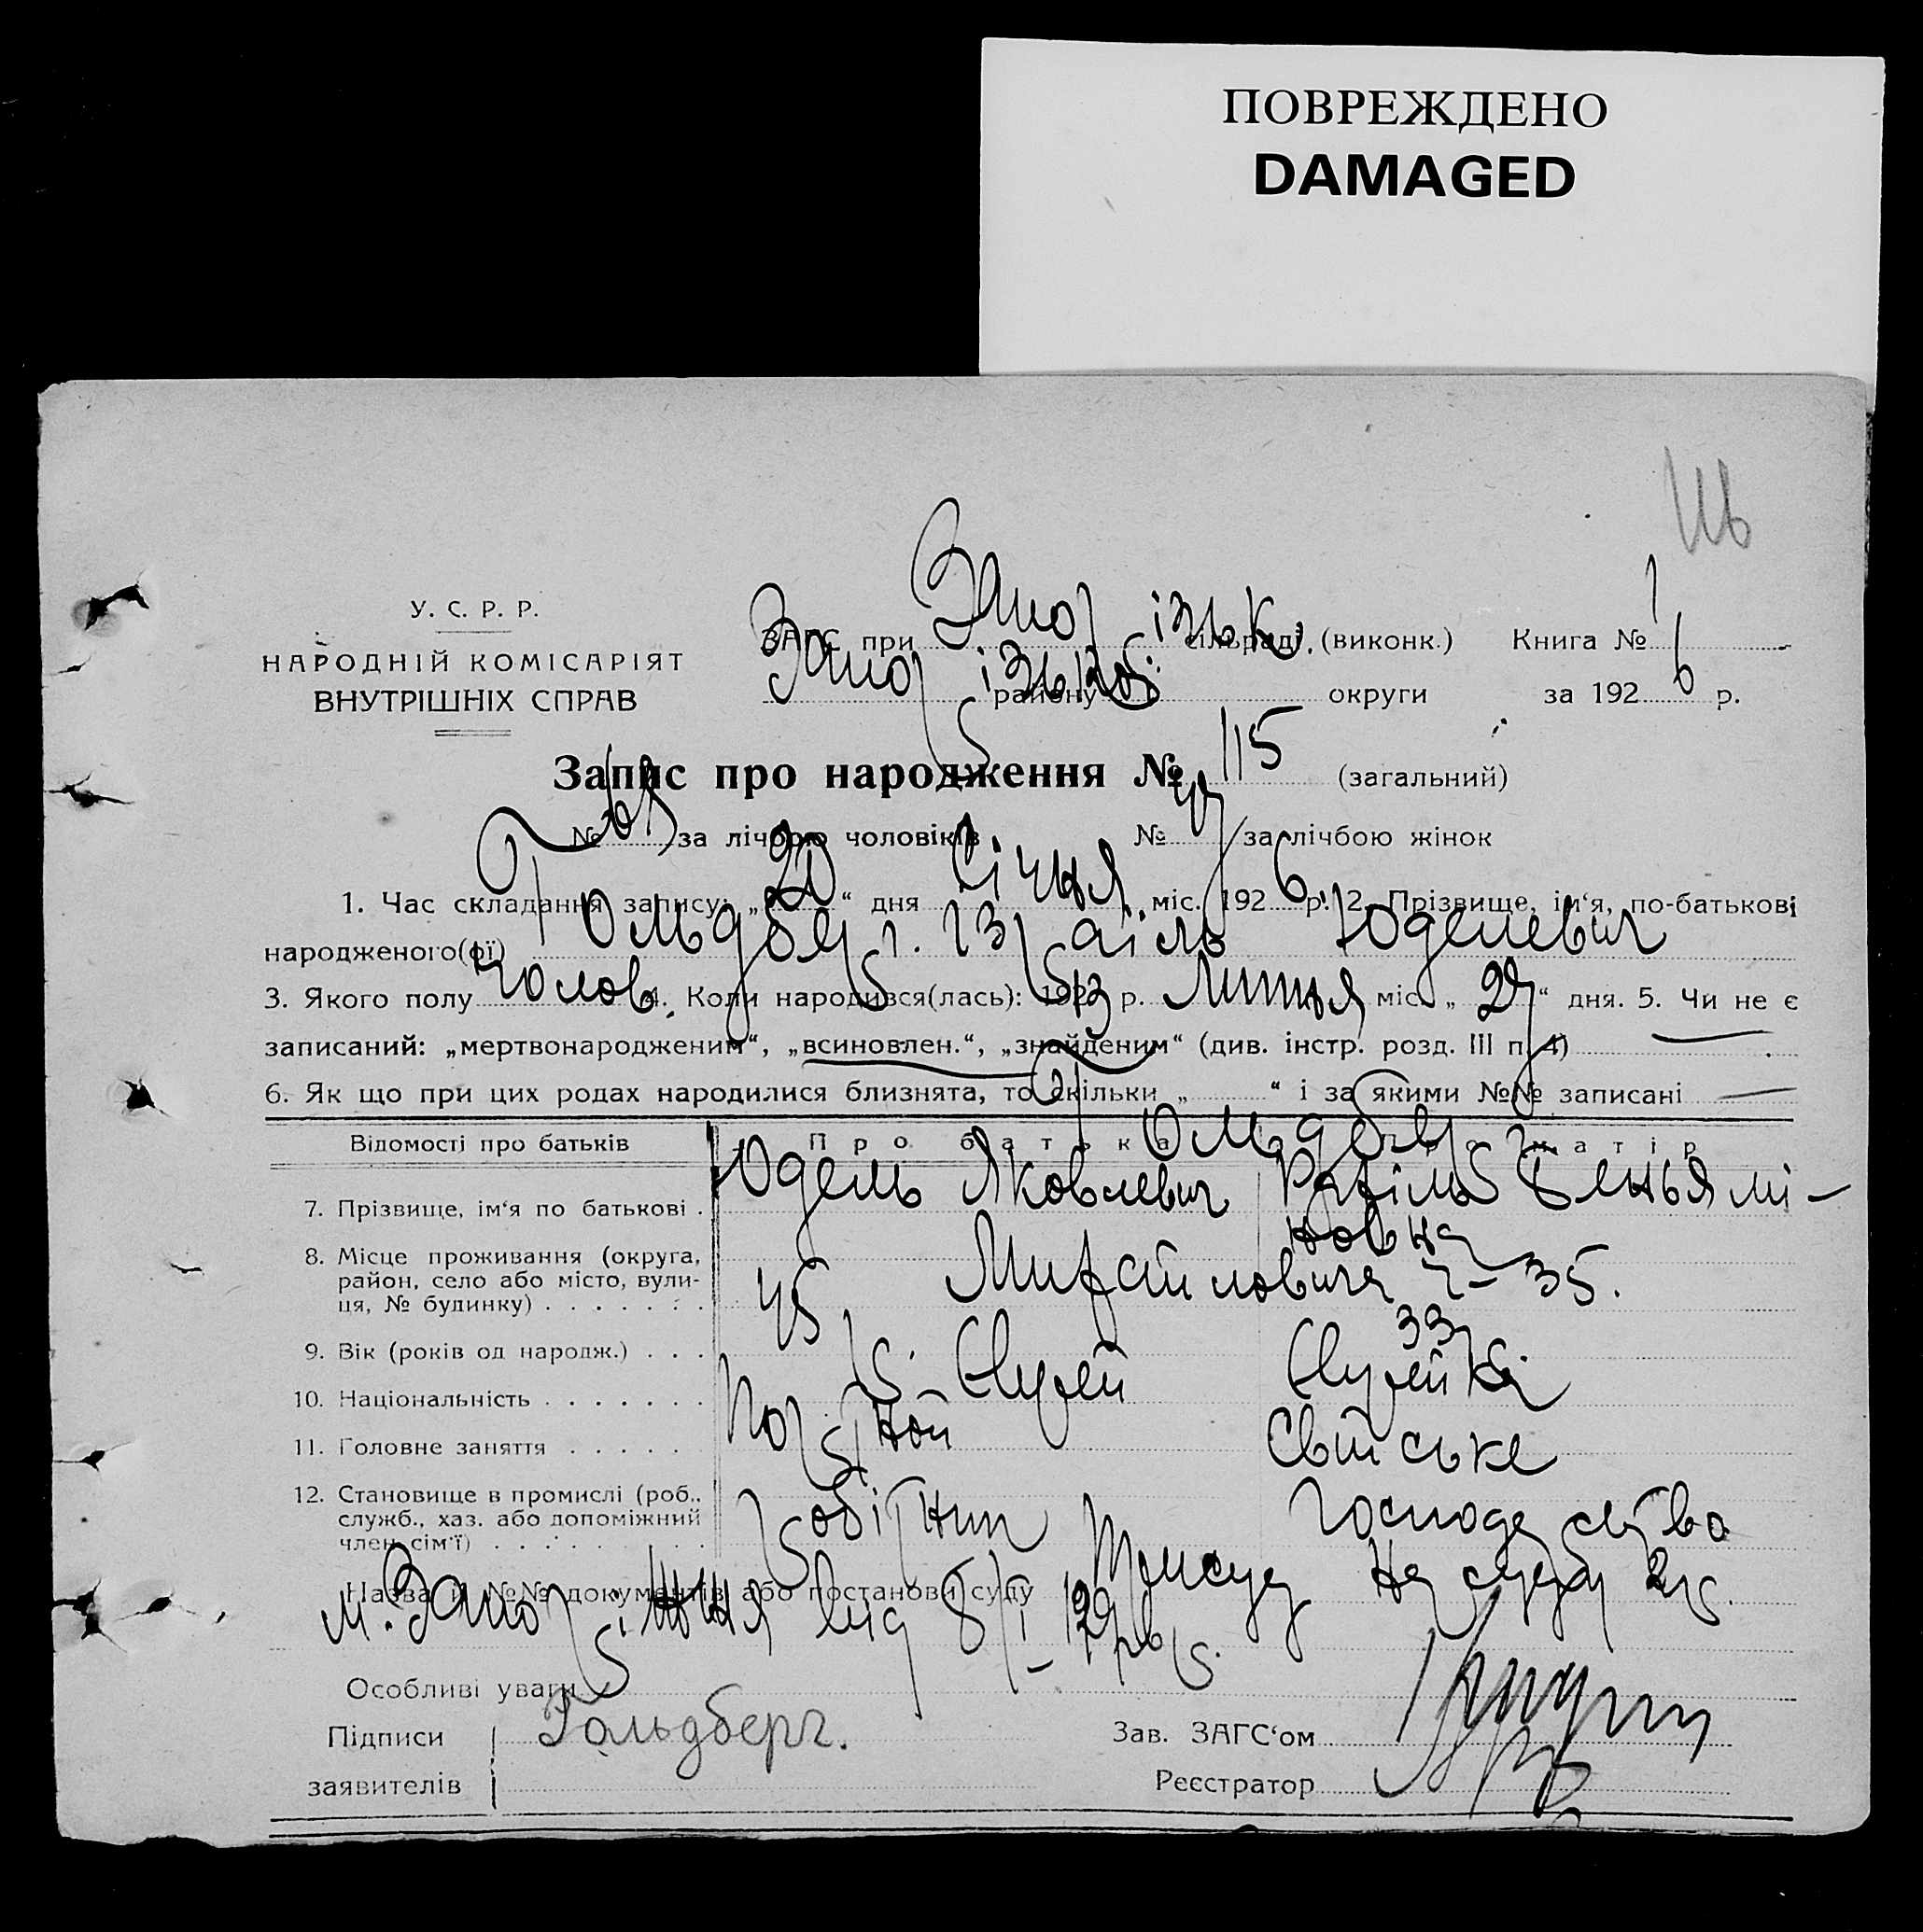 ПОВРЕЖДЕНО
DAMAGED
У. С. Р. Р.
НАРОДНІЙ КОМІСАРІЯТ
ВНУТРІШНІХ СПРАВ
ЗАГС при Запорізьк. сільраді, (виконк.) Книга № 1
Запорізької району округи за 1926 р.
Запис про народження № 115 (загальний)
№ за лічбою чоловіків № 47 за лічбою жінок
1. Час складання запису: „20“ дня Січня міс. 1926 р. 2. Прізвище, ім‘я, по-батькові
народженого(ої) Гольдберг. Ізраїль Юделевич
3. Якого полу Чолов. 4. Коли народився(лась): 1913 р. Липня міс. „29“ дня. 5. Чи не є
записаний: „мертвонародженим“, „всиновлен.“, „знайденим“ (див. інстр. розд. III п. 4) —
6. Як що при цих родах народилися близнята, то скільки „ “ і за якими №№ записані —
Відомості про батьків Про батька матір
Гольдберг
7. Прізвище, ім‘я по батькові . Юдель Яковлевич Рахіль Беньямі-
новна
8. Місце проживання (округа,
район, село або місто, вули-
ця, № будинку) . . . . . . . Михайловича ч- 35.
9. Вік (років од народж.) . . . 45 р. 33 р.
10. Національність . . . . . . . Єврей Єврейка
11. Головне заняття . . . . . . Портной Свійське
господарство
12. Становище в промислі (роб.,
служб., хаз. або допоміжний
член сім‘ї) . . . . . . . . . робітник
Назва й №№ документів або постанови суду Присуд Нарсуду 2 р.
м. Запоріжжя від 8/I - 1926 р.
Особливі уваги
Підписи Гольдберг. Зав. ЗАГС‘ом
заявителів Реєстратор